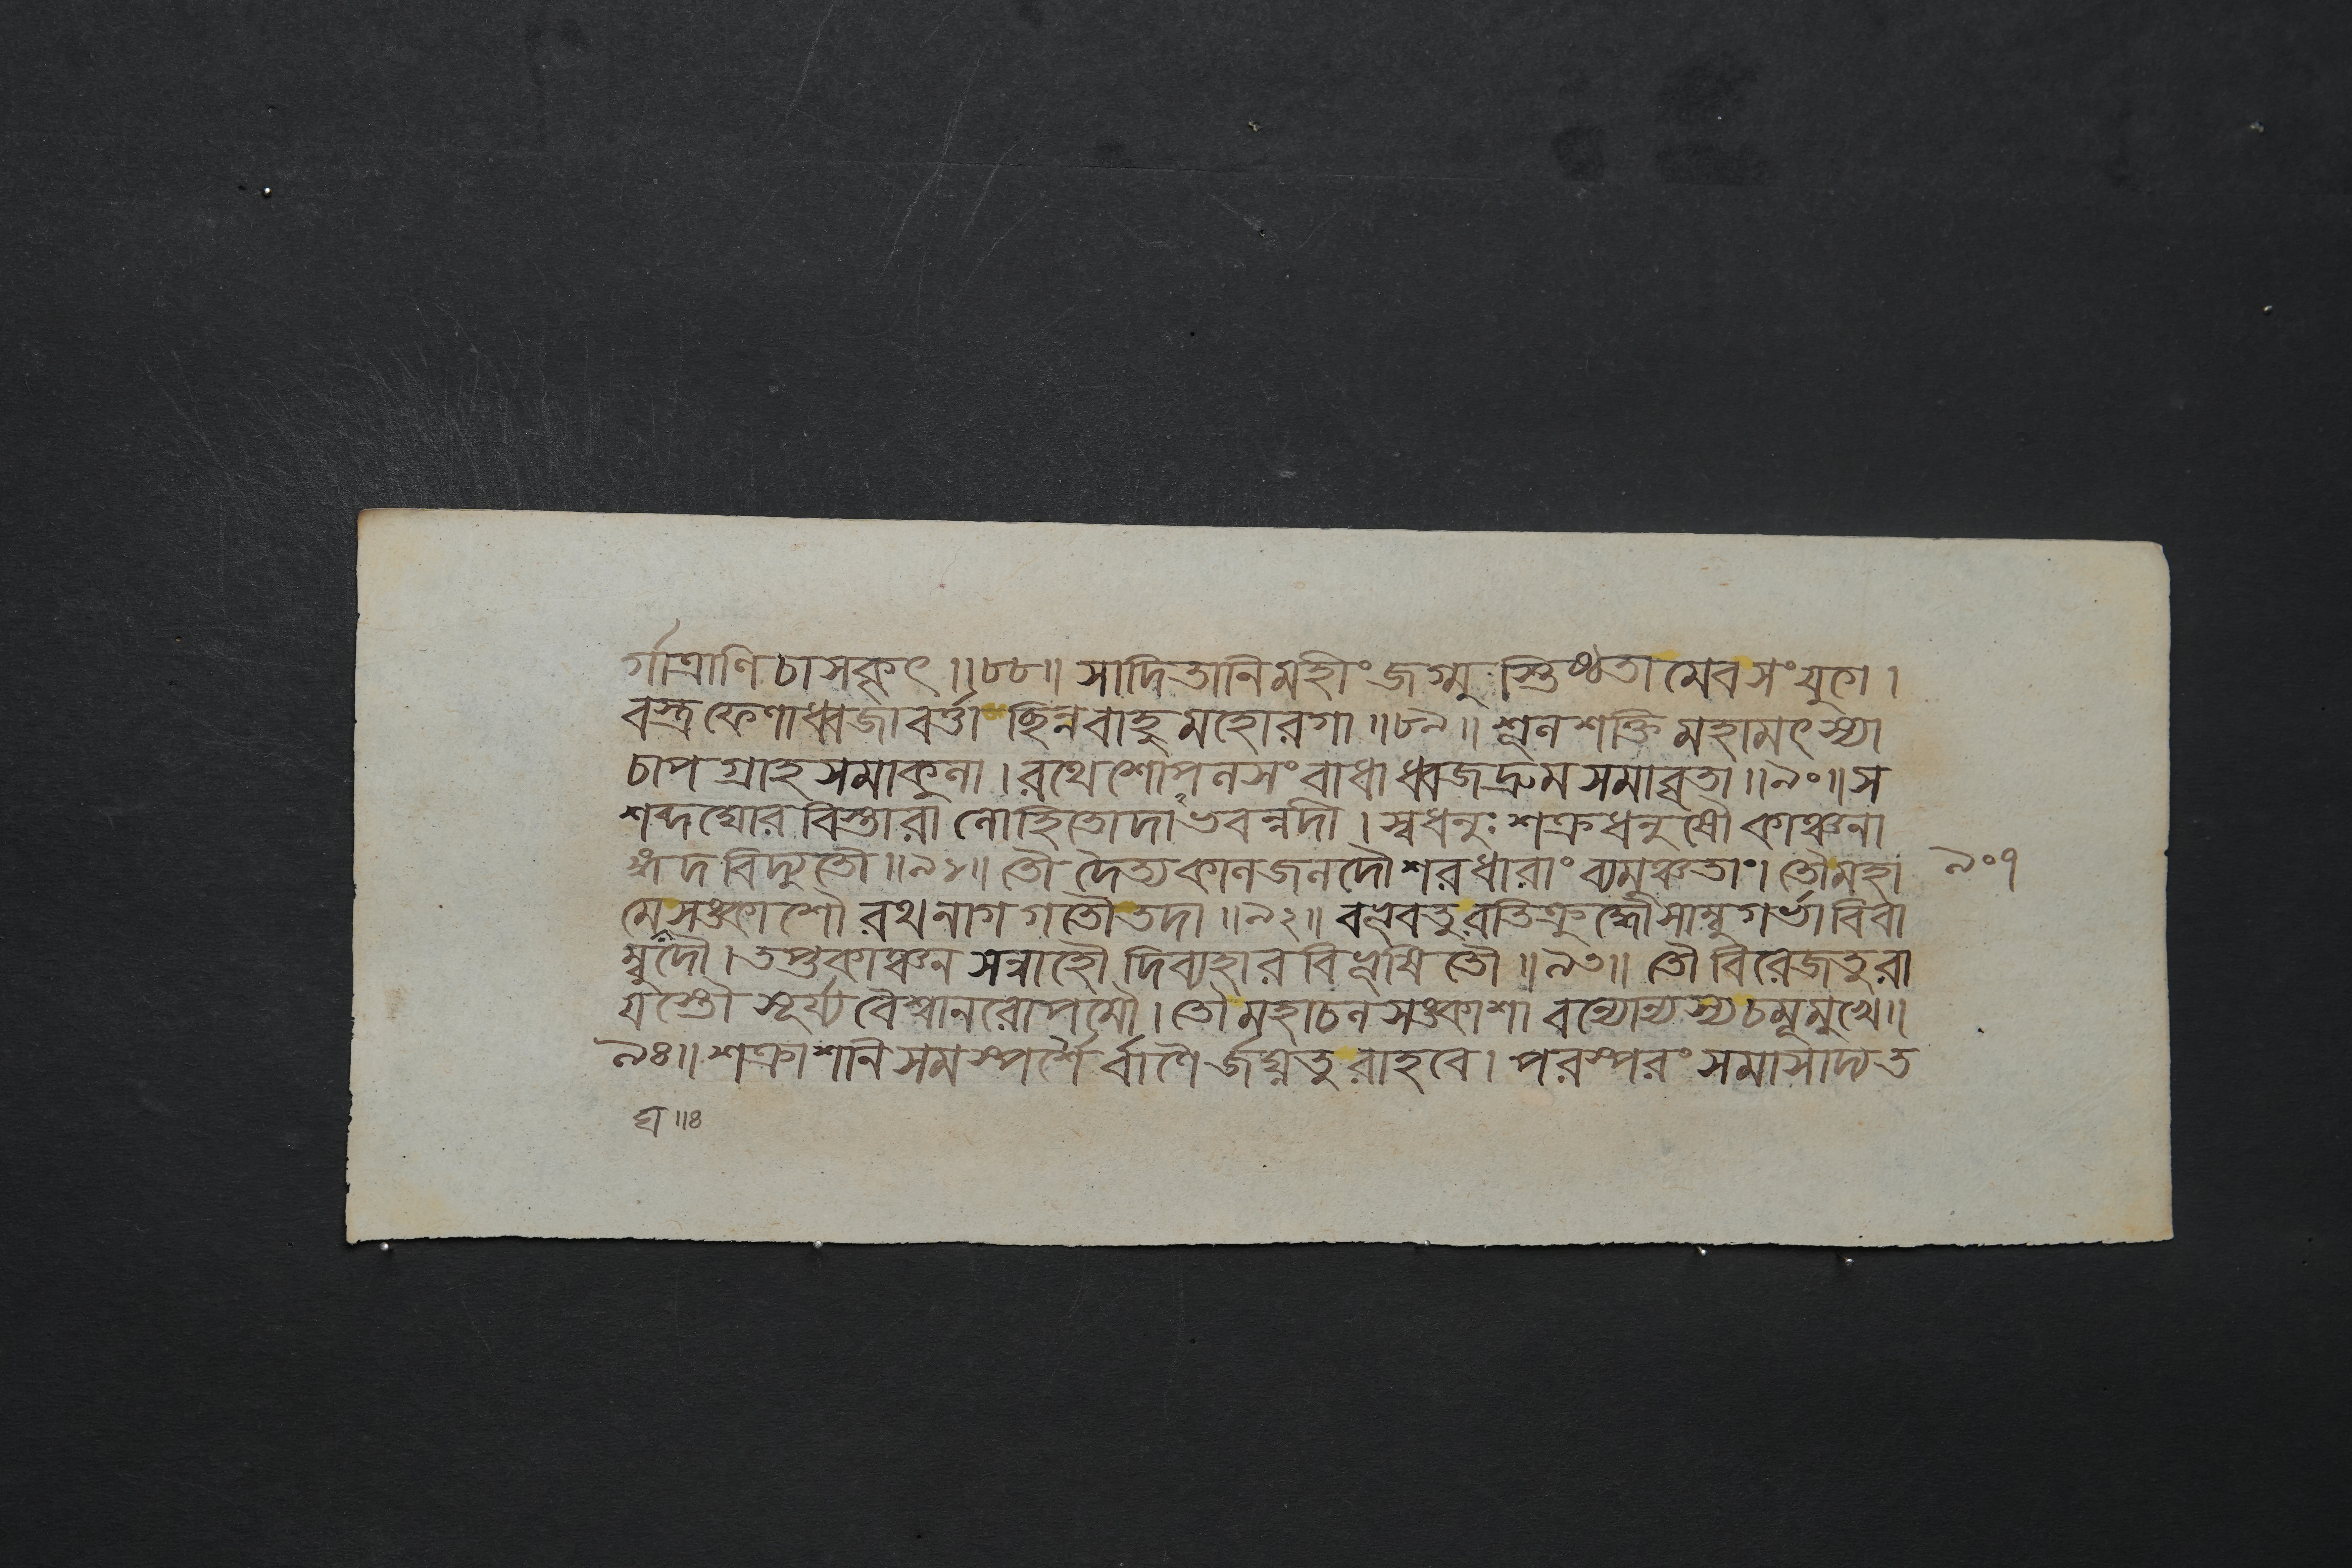 র্গাত্রাণি চাসকৃৎ ॥৮৮॥ সাদিতানি মহীং জগ্মুস্তিষ্ঠতামেব সংযুগে ।
বস্ত্রফেণাধ্বজাবর্ত্তা ছিন্নবাহুমহোরগা ॥৮৯॥ শূলশক্তিমহামৎস্যা
চাপগ্রাহসমাকুলা । রথেশোপলসংবাধা ধ্বজদ্রুমসমাবৃতা ॥৯০॥ স
শব্দঘোরবিস্তারা লোহিতোদাভবন্নদী । স্বধনুঃ শক্রধনুষৌ কাঞ্চনা
ঙ্গদবিদ্যুতৌ ॥৯১॥ তৌ দৈত্যকালজলদৌ শরধারাং ব্যমুঞ্চতাং। তৌ মহা
মেঘসঙ্কাশৌ রথনাগগতৌ তদা ॥৯২॥ বভূবতুরতিক্রুদ্ধৌ সাম্বুগর্ভাবিবা
ম্বুদৌ । তপ্তকাঞ্চনসন্নাহৌ দিব্যহারবিভূষিতৌ ॥৯৩॥ তৌ বিরেজতুরা
য়স্তৌ সূর্য্যবৈশ্বানরোপমৌ । তৌ মহাচলসঙ্কাশাবন্যোন্যস্য চমূমুখে॥
৯৪॥ শক্রাশনিসমস্পর্শৈর্বাণৈর্জঘ্নতুরাহবে । পরস্পরং সমাসাদ্য ত
৯০৭
ঘ ॥৪